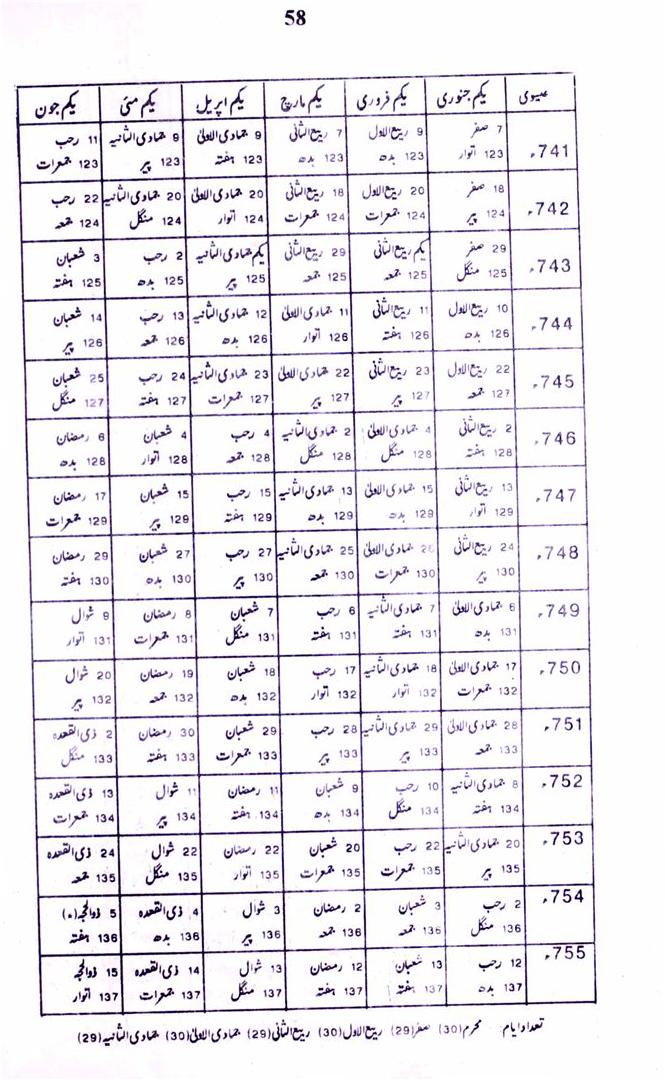 58
عیسوی یکم جنوری یکم فروری یکم مارچ یکم اپریل یکم مئی یکم جون
741ء 7 صفر 9 ربیع الاول 7 ربیع الثانی 9 جمادی الاولیٰ 9 جمادی الثانیہ 11 رجب
123 اتوار 123 بدھ 123 بدھ 123 ہفتہ 123 پیر 123 جمعرات
742ء 18 صفر 20 ربیع الاول 18 ربیع الثانی 20 جمادی الاولیٰ 20 جمادی الثانیہ 22 رجب
124 پیر 124 جمعرات 124 جمعرات 124 اتوار 124 منگل 124 جمعہ
743ء 29 صفر یکم ربیع الثانی 29 ربیع الثانی یکم جمادی الثانیہ 2 رجب 3 شعبان
125 منگل 125 جمعہ 125 جمعہ 125 پیر 125 بدھ 125 ہفتہ
744ء 10 ربیع الاول 11 ربیع الثانی 11 جمادی الاولیٰ 12 جمادی الثانیہ 13 رجب 14 شعبان
126 بدھ 126 ہفتہ 126 اتوار 126 بدھ 126 جمعہ 126 پیر
745ء 22 ربیع الاول 23 ربیع الثانی 22 جمادی الاولیٰ 23 جمادی الثانیہ 24 رجب 25 شعبان
127 جمعہ 127 پیر 127 پیر 127 جمعرات 127 ہفتہ 127 منگل
746ء 2 ربیع الثانی 4 جمادی الاولیٰ 2 جمادی الثانیہ 4 رجب 4 شعبان 6 رمضان
128 ہفتہ 128 منگل 128 منگل 128 جمعہ 128 اتوار 128 بدھ
747ء 13 ربیع الثانی 15 جمادی الاولیٰ 13 جمادی الثانیہ 15 رجب 15 شعبان 17 رمضان
129 اتوار 129 بدھ 129 بدھ 129 ہفتہ 129 پیر 129 جمعرات
748ء 24 ربیع الثانی 26 جمادی الاولیٰ 25 جمادی الثانیہ 27 رجب 27 شعبان 29 رمضان
130 پیر 130 جمعرات 130 جمعہ 130 پیر 130 بدھ 130 ہفتہ
749ء 6 جمادی الاولیٰ 7 جمادی الثانیہ 6 رجب 7 شعبان 8 رمضان 9 شوال
131 بدھ 131 ہفتہ 131 ہفتہ 131 منگل 131 جمعرات 131 اتوار
750ء 17 جمادی الاولیٰ 18 جمادی الثانیہ 17 رجب 18 شعبان 19 رمضان 20 شوال
132 جمعرات 132 اتوار 132 اتوار 132 بدھ 132 جمعہ 132 پیر
751ء 28 جمادی الاولیٰ 29 جمادی الثانیہ 28 رجب 29 شعبان 30 رمضان 2 ذی القعدہ
133 جمعہ 133 پیر 133 پیر 133 جمعرات 133 ہفتہ 133 منگل
752ء 8 جمادی الثانیہ 10 رجب 9 شعبان 11 رمضان 11 شوال 13 ذی القعدہ
134 ہفتہ 134 منگل 134 بدھ 134 ہفتہ 134 پیر 134 جمعرات
753ء 20 جمادی الثانیہ 22 رجب 20 شعبان 22 رمضان 22 شوال 24 ذی القعدہ
135 پیر 135 جمعرات 135 جمعرات 135 اتوار 135 منگل 135 جمعہ
754ء 2 رجب 3 شعبان 2 رمضان 3 شوال 4 ذی القعدہ 5 ذوالحجہ (۰)
136 منگل 136 جمعہ 136 جمعہ 136 پیر 136 بدھ 136 ہفتہ
755ء 12 رجب 13 شعبان 12 رمضان 13 شوال 14 ذی القعدہ 15 ذوالحجہ
137 بدھ 137 ہفتہ 137 ہفتہ 137 منگل 137 جمعرات 137 اتوار
تعداد ایام محرم (30) صفر (29) ربیع الاول (30) ربیع الثانی (29) جمادی الاولیٰ (30) جمادی الثانیہ (29)